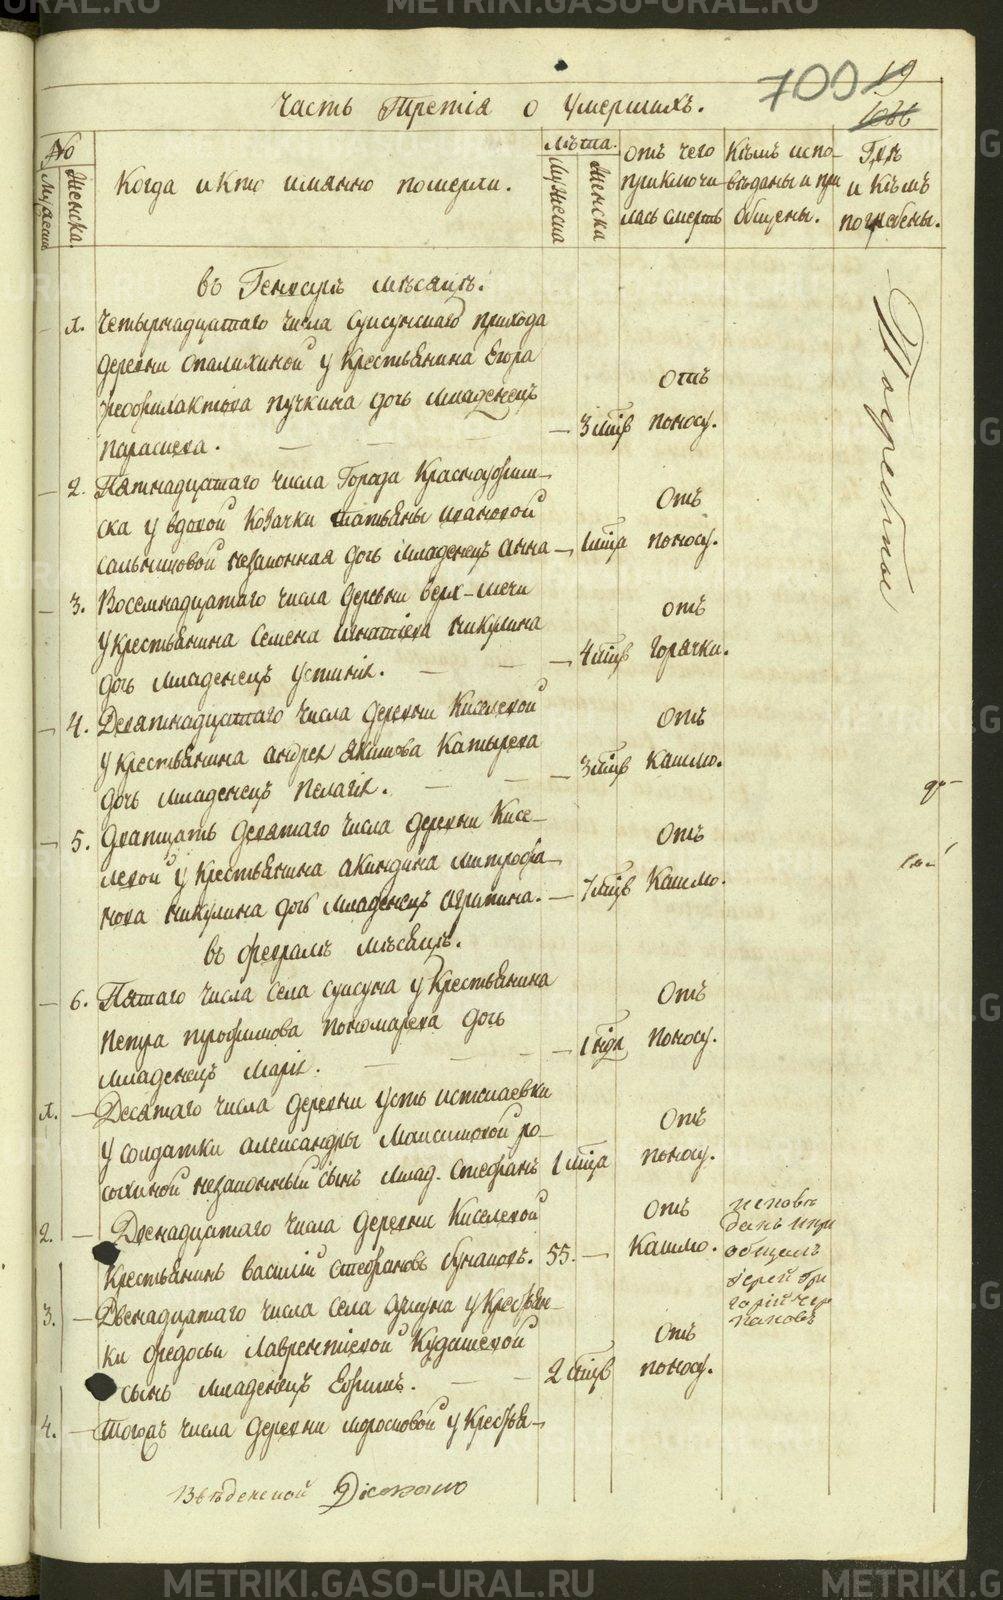 METRIKI.GASO-URAL.RU
700 19
Часть Третія о умершихъ.
№
Мужеска
Женска.
Когда и кто имянно померли.
Лѣта.
Мужеска
Женска
отъ чего приключилась смерть
Кѣмъ исповѣданы и приобщены.
Гдѣ и кѣмъ погребены.
въ Генварѣ мѣсяцѣ.
1. Четырнадцатаго числа суксунскаго прихода
деревни опалихиной у крестьянина Егора
Феофилактова пучкина дочь младенецъ
параскева. — 3 мцв отъ поносу.
2. Пятнадцатаго числа Города Красноуфим-
ска у вдовой козачки татьяны ивановой
сальниковой незаконная дочь младенецъ анна — 1 мца отъ поносу.
3. Восемнадцатаго числа деревни верх-
у крестьянина семена никулина
дочь младенецъ устинія. — 4 мцв отъ горячки.
4. Девятнадцатаго числа деревни Киселевой
у крестьянина андрея якимова Катырева
дочь младенецъ пелагія. — 3 мцв отъ Кашлю.
5. Дватцать девятаго числа деревни Кисе-
левой у крестьянина акиндина митрофа-
нова никулина дочь младенецъ агрипина. — 7 мцв отъ Кашлю.
въ февралѣ мѣсяцѣ.
6. Пятаго числа села суксуна у крестьянина
петра трофимова пономарева дочь
младенецъ марія. — 1 ндл отъ поносу.
1. — Десятаго числа деревни усть
у солдатки александры Максимовой
незаконный сынъ млад. стефанъ 1 мца отъ поносу.
2. — Двенадцатаго числа деревни Киселевой
крестьянинъ василій стефановъ. 55. — отъ Кашлю.
исповѣданъ и приобщалъ іерей григорій черпановъ
3. — Двенадцатаго числа села суксуна у крестьян-
ки федосьи Лаврентіевой Кудашевой
сынъ младенецъ Ефимъ. — 2 мцв отъ поносу.
4. — Тогожъ числа деревни моросковой у крестья-
Погребены
Введенской Діаконъ
METRIKI.GASO-URAL.RU